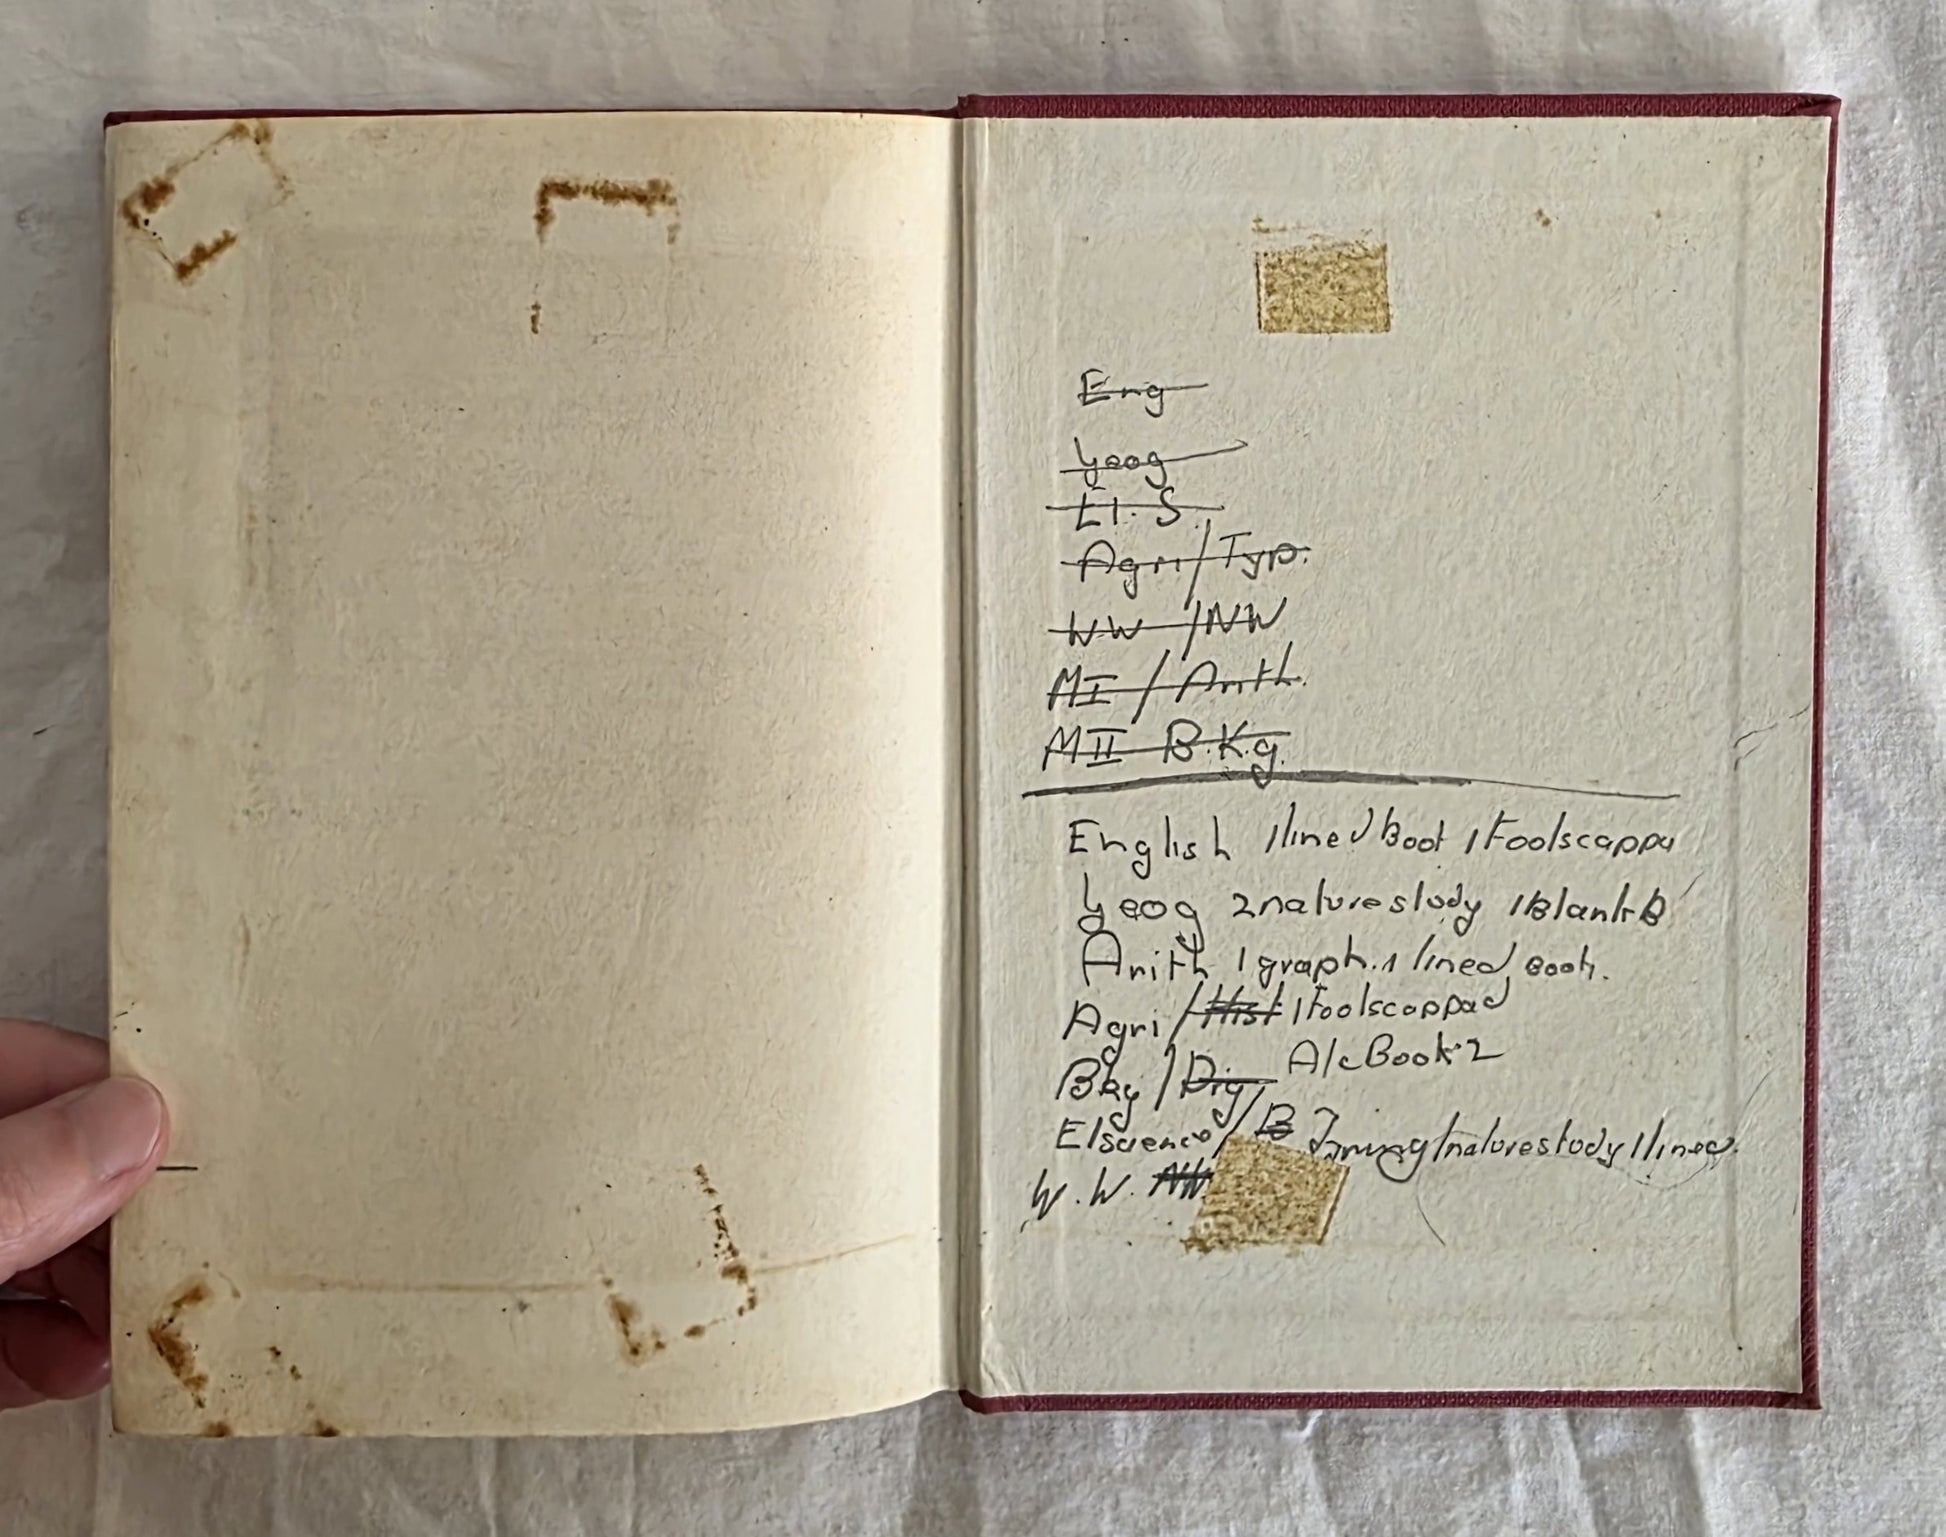 Eng
Geog
El. S.
Agri / Typ.
WW / NW
MI / Arith.
MII B.Kg.
English 1 lined Book 1 Foolscappa
Geog 2 nature study 1 Blank B
Arith 1 graph. 1 lined Book.
Agri / Hist 1 Foolscappad
Bkg / Dig A/c Book 2
Elscience / B 1 nature study 1 lined
W.W. NW